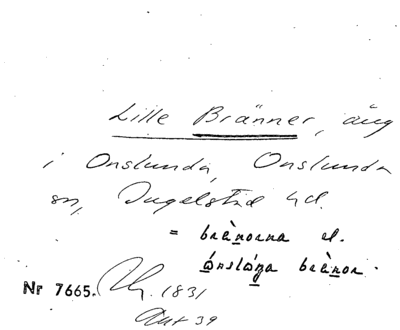 Lille Bränner, äng
i Onslunda, Onslunda
sn, Ingelstad hd.
= bræ̀norna el.
ónslȯ́na bræ̀nor.
Nr 7665. 1831
Akt 39